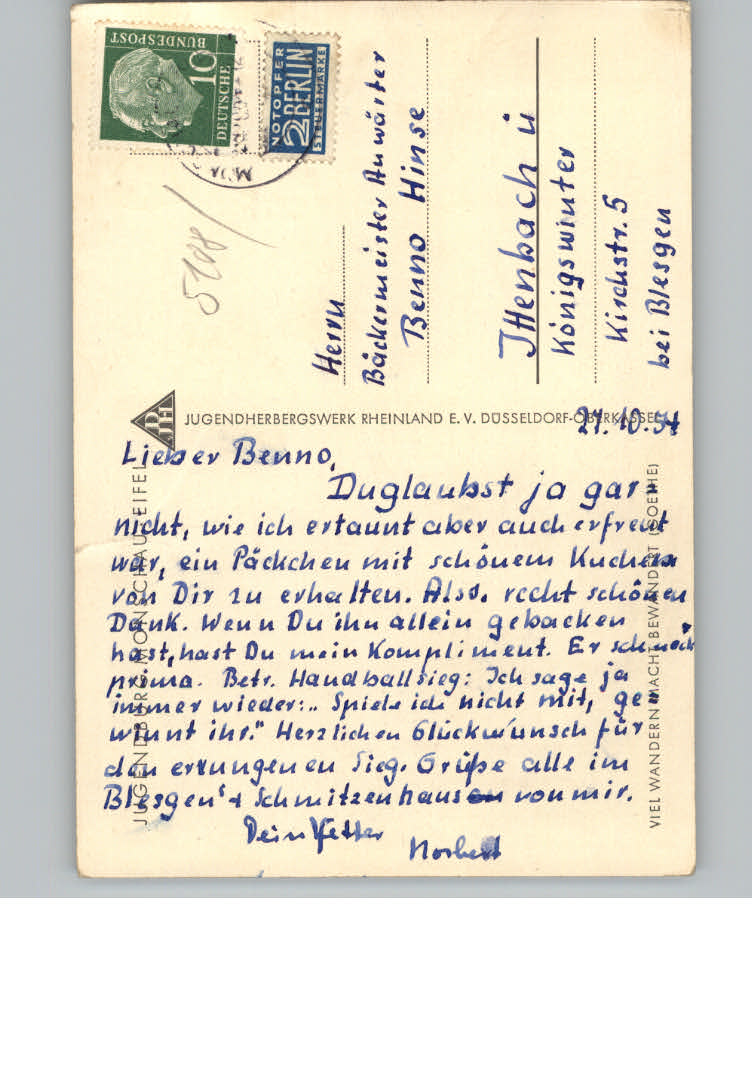 DEUTSCHE
BUNDESPOST
10
NOTOPFER
2 BERLIN
STEUERMARKE
5188
Herrn
Bäckermeister Anwärter
Benno Hinse
Ittenbach ü
Königswinter
Kirchstr. 5
bei Blesgen
JUGENDHERBERGSWERK RHEINLAND E. V. DÜSSELDORF-OBERKASSEL
JUGENDBURG MONSCHAU/EIFEL
VIEL WANDERN MACHT BEWANDERT (GOETHE)
Lieber Benno,
Du glaubst ja gar-
nicht, wie ich ertaunt aber auch erfreut
war, ein Päckchen mit schönem Kuchen
von Dir zu erhalten. Also. recht schönen
Dank. Wenn Du ihn allein gebacken
hast, hast Du mein Kompliment. Er schmeckt
prima. Betr. Handballsieg: Ich sage ja
immer wieder: „Spiele ich nicht mit, ge=
winnt ihr." Herzlichen Glückwunsch für
den errungenen Sieg. Grüße alle im
Blesgen's + Schmitzenhaus von mir.
Dein Vetter
Norbert